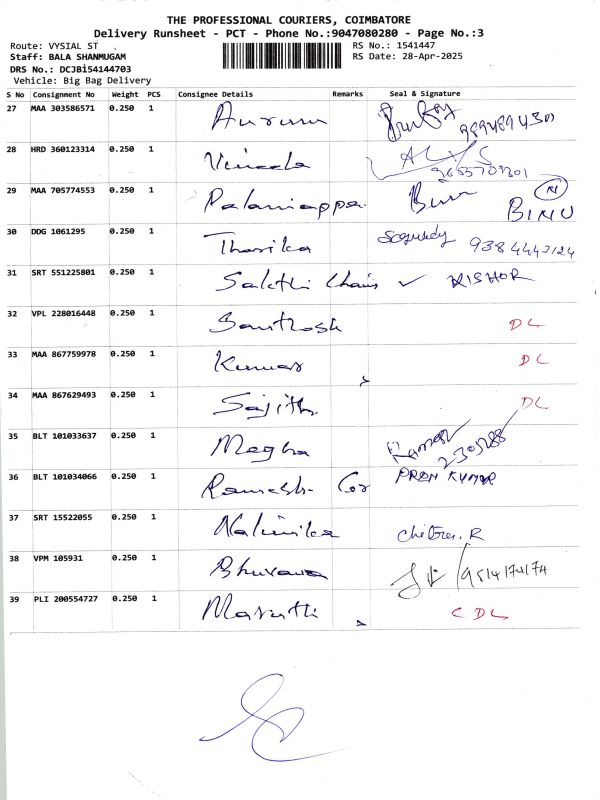 THE PROFESSIONAL COURIERS, COIMBATORE
Delivery Runsheet - PCT - Phone No.:9047080280 - Page No.:3
Route: VYSIAL ST
RS No.: 1541447
Staff: BALA SHANMUGAM
RS Date: 28-Apr-2025
DRS No.: DCJB154144703
Vehicle: Big Bag Delivery
S No Consignment No Weight PCS Consignee Details Remarks Seal & Signature
27 MAA 303586571 0.250 1
28 HRD 360123314 0.250 1
29 MAA 705774553 0.250 1 Palaniappa. BINU
30 DDG 1061295 0.250 1 Tharika
31 SRT 551225801 0.250 1 Sakthi Chains ✓ KISHOR
32 VPL 228016448 0.250 1 Santhosh DL
33 MAA 867759978 0.250 1 Kumar DL
34 MAA 867629493 0.250 1 Sajith. DL
35 BLT 101033637 0.250 1 Megha
36 BLT 101034066 0.250 1 Ramesh Cor PREM KUMAR
37 SRT 15522055 0.250 1
38 VPM 105931 0.250 1 Bhuvana
39 PLI 200554727 0.250 1 Maruthi CDL